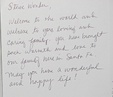 Welcome to the world and
welcome to your loving and
caring family. You have brought
such warmth and love to
our family like a Santa to
May you have a wonderful
and happy life!